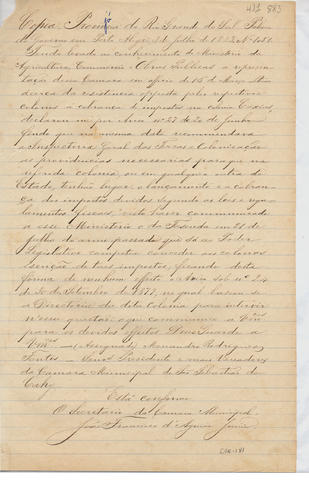 411 583
Copia: Provincia do Rio Grande do Sul. Palacio
do Governo em Porto Alegre, de Julho de 1883. Nº
Tendo levado ao conhecimento do Ministerio da
Agricultura, Commercio e Obras Publicas a represen-
tação dessa Camara em officio de 15 de Março
ácerca da resistencia opposta pelos respectivos
colonos a cobrança de impostos na colonia Caxias,
declarou-me por Aviso nº 27 de 20 de Junho
findo que na mesma data recommendava
a Inspectoria Geral das Terras e Colonisação
as providencias necessarias para que na
referida colonia, ou em qualquer outra do
Estado, tenhão lugar o lançamento e a cobran-
ça dos impostos devidos segundo as leis e regu-
lamentos fiscaes, visto haver communicado
a esse Ministerio o da Fazenda em 28 de
Julho do anno passado que só ao Poder
Legislativo compete conceder aos colonos
isenção de taes impostos, ficando desta
forma de nenhum effeito o Aviso nº 24
de 20 de Setembro de 1877, no qual
a Directoria da dita Colonia para intervir
n'essa questão: o que communico a Vmcês
para os devidos effeitos. Deus Guarde a
Vmcês — (Assignado) Menandro Rodrigues
Fontes — Snrs. Presidente e mais Vereadores
da Camara Municipal de São Sebastião do
Cahy.
Está conforme
O Secretario da Camara Municipal
João Francisco d'